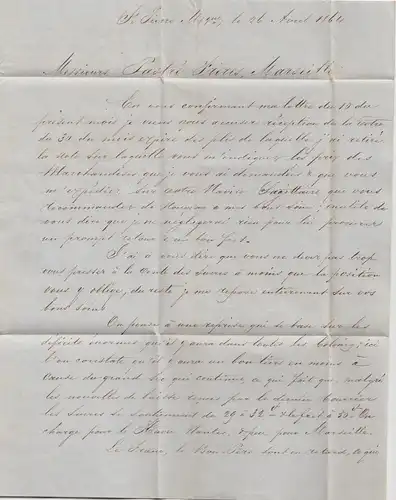 St Pierre Mque, le 26 Avril 1864
Messieurs Pastré Frères, Marseille
En vous confirmant ma lettre du 10 du
présent mois je viens vous accuser réception de la votre
du 30 du mois expiré du pli de laquelle j'ai retiré
la note sur laquelle vous m'indiquez les prix des
Marchandises que je vous ai demandées & que vous
m'expédiez sur votre Navire Sagittaire que vous
recommandez de nouveau à mes bons soins; inutile de
vous dire que je ne négligerai rien pour lui procurer
un prompt retour & un bon fret.
J'ai à vous dire que vous ne devez pas trop
vous presser à la vente des sucres à moins que la position
vous y oblige, du reste je me repose entièrement sur vos
bons soins.
On pense à une reprise qui se base sur les
déficits énormes qu'il y aura dans toutes les Colonies; ici
l'on constate qu'il y aura un bon tiers en moins à
cause du grand sec qui continue, ce qui fait que, malgré
les nouvelles de baisse venues par le dernier courrier
les sucres se soutiennent de 29 à 32
charge pour le Havre Nantes, & pour Marseille.
Le France, le Bon Père sont en retard, ce qui